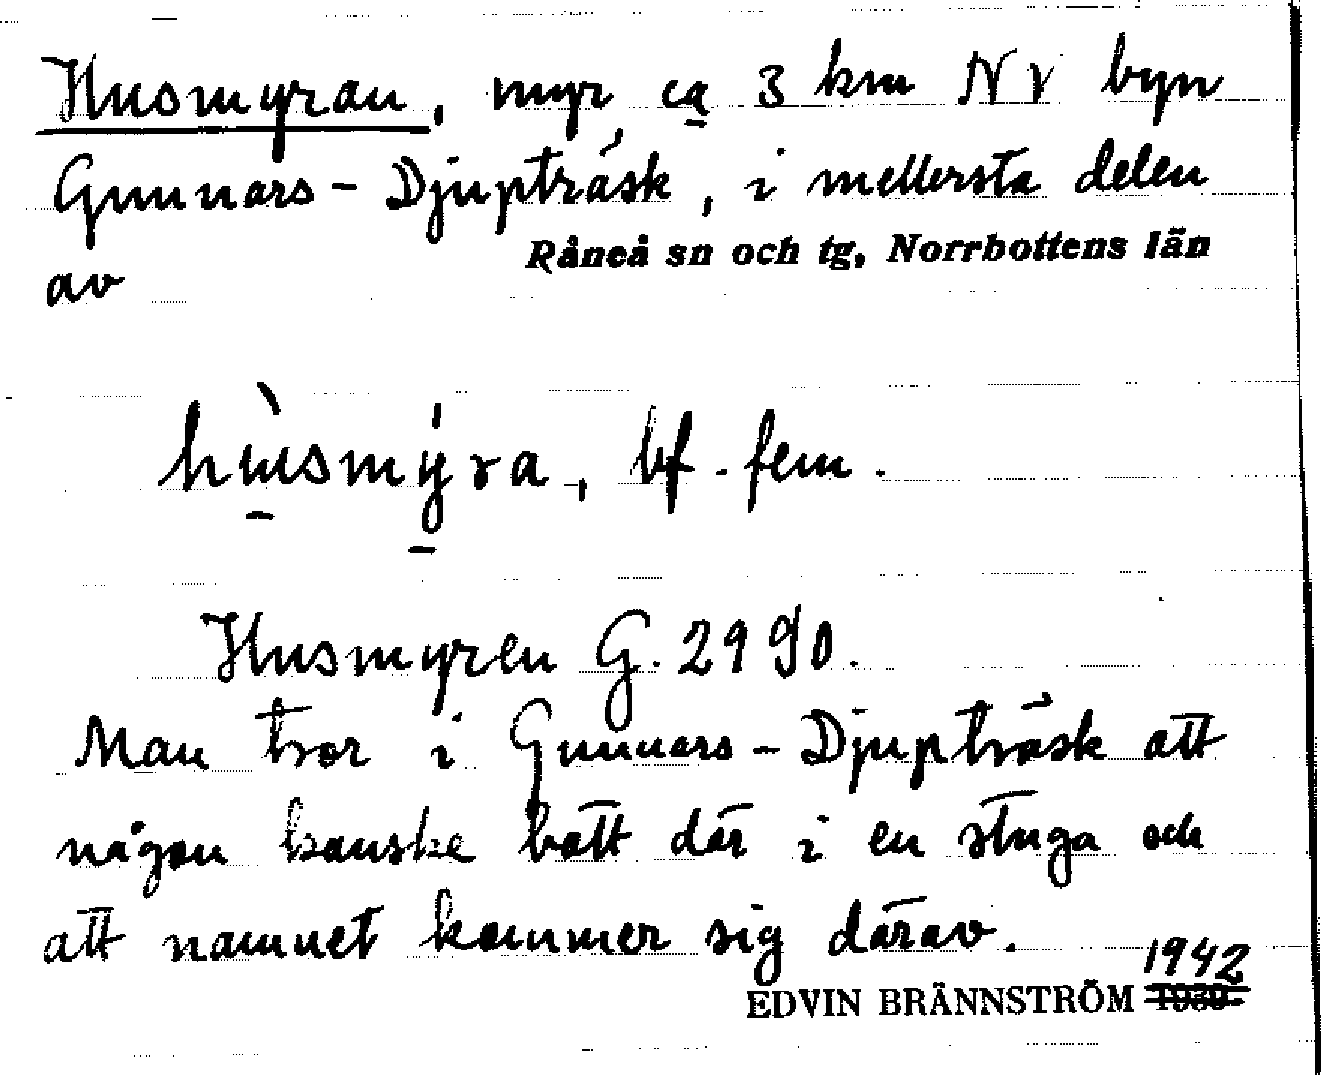 Husmyran, myr, ca 3 km NV byn
Gunnars-Djupträsk, i mellersta delen
av Råneå sn och tg, Norrbottens län
hùsmýra, bf. fem.
Husmyren G. 2990.
Man tror i Gunnars-Djupträsk att
någon kanske bott där i en stuga och
att namnet kommer sig därav.
1942
EDVIN BRÄNNSTRÖM 1930